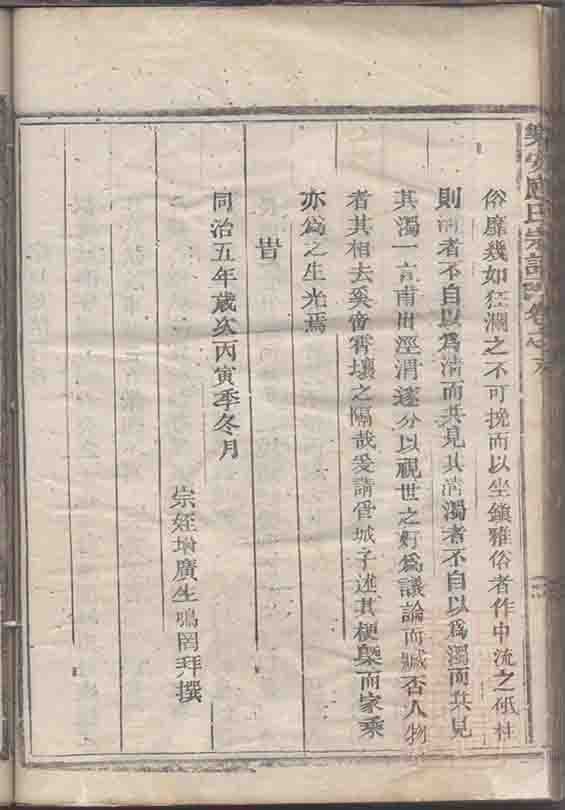 俗靡幾如狂瀾之不可挽而以坐鎮雅俗者作中流之砥柱
則清者不自以為清而共見其清濁者不自以為濁而共見
其濁一言甫出涇渭遂分以視世之好為議論而臧否人物
者其相去奚啻霄壤之隔哉爰請管城子述其梗槩而家乘
亦為之生光焉
旹
同治五年歲次丙寅季冬月
宗姪增廣生鳴岡拜撰
氏宗譜 卷之